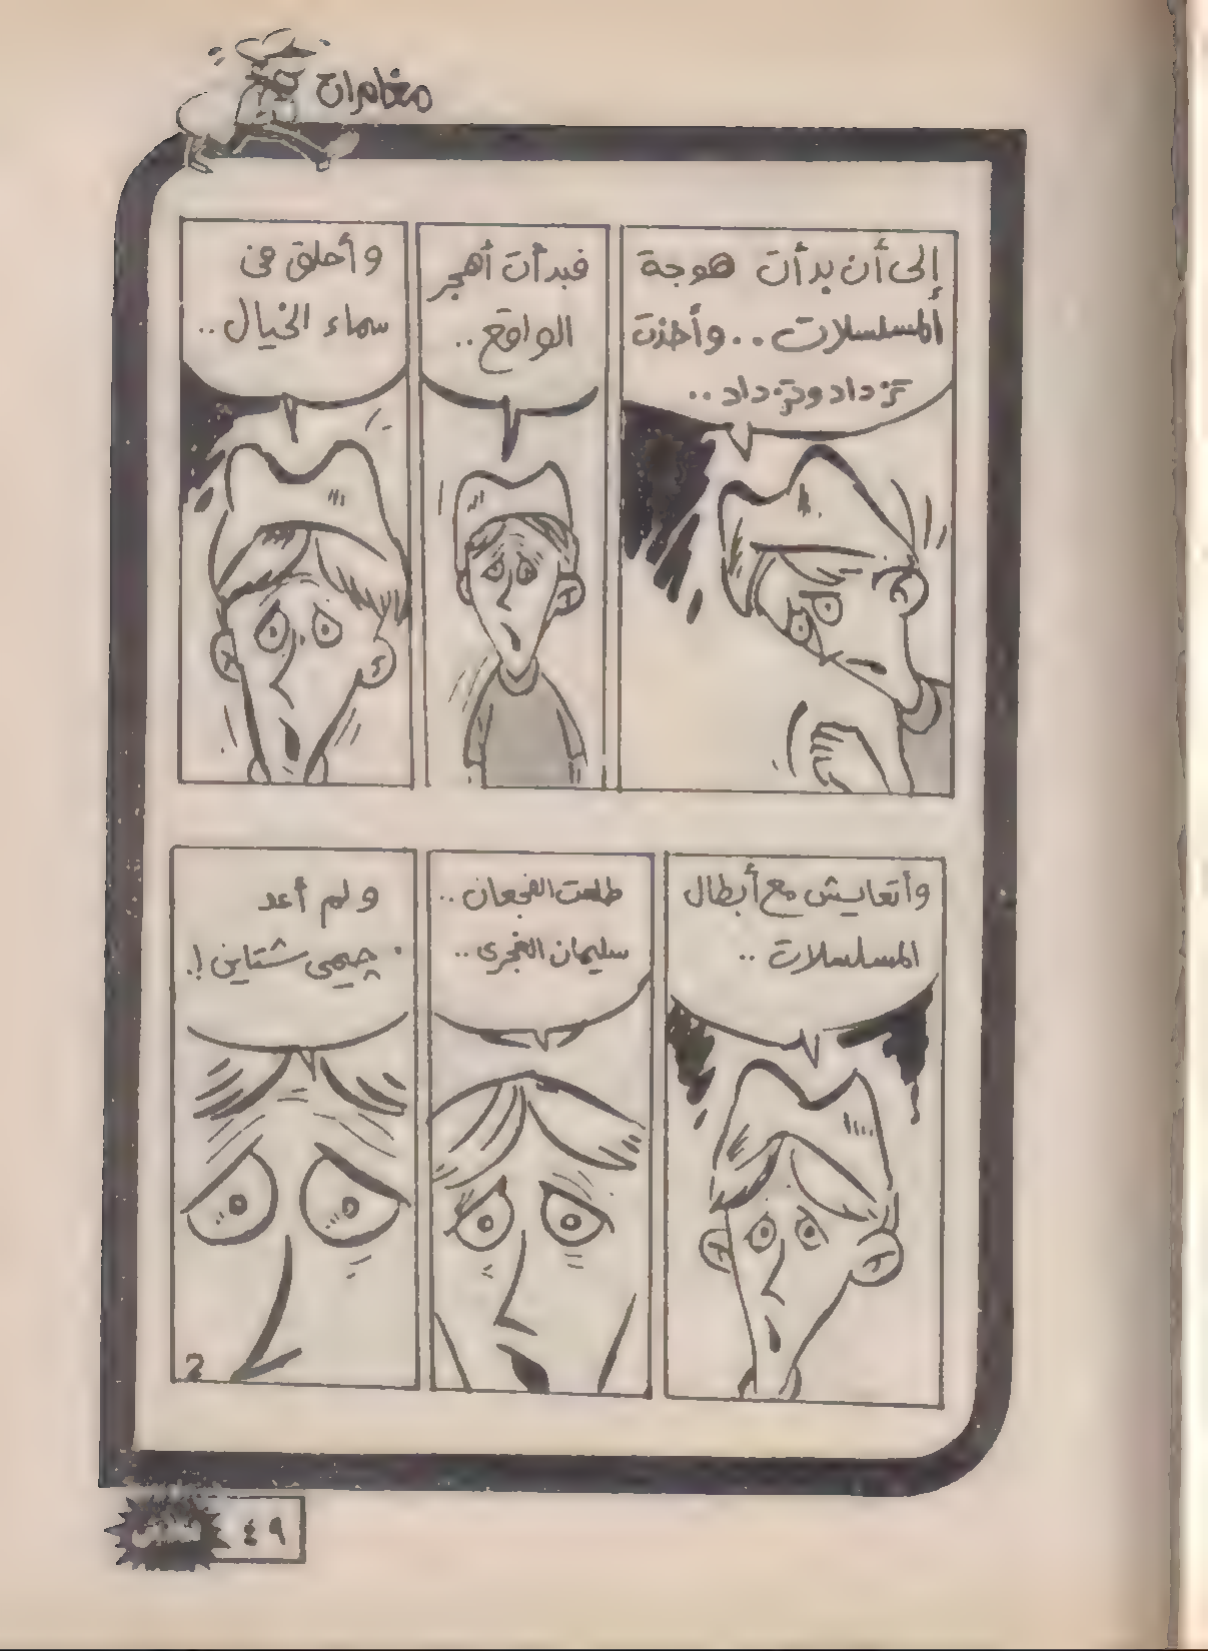 مغامرات
إلى أن بدأت هوجة
المسلسلات.. وأخذت
تزداد وتزداد..
فبدأت أهجر
الواقع..
وأحلق فى
سماء الخيال..
وأتعايش مع أبطال
المسلسلات..
طلعت الفجعان..
سليمان الغجرى..
ولم أعد
چيمى شتاين!.
2
٤٩